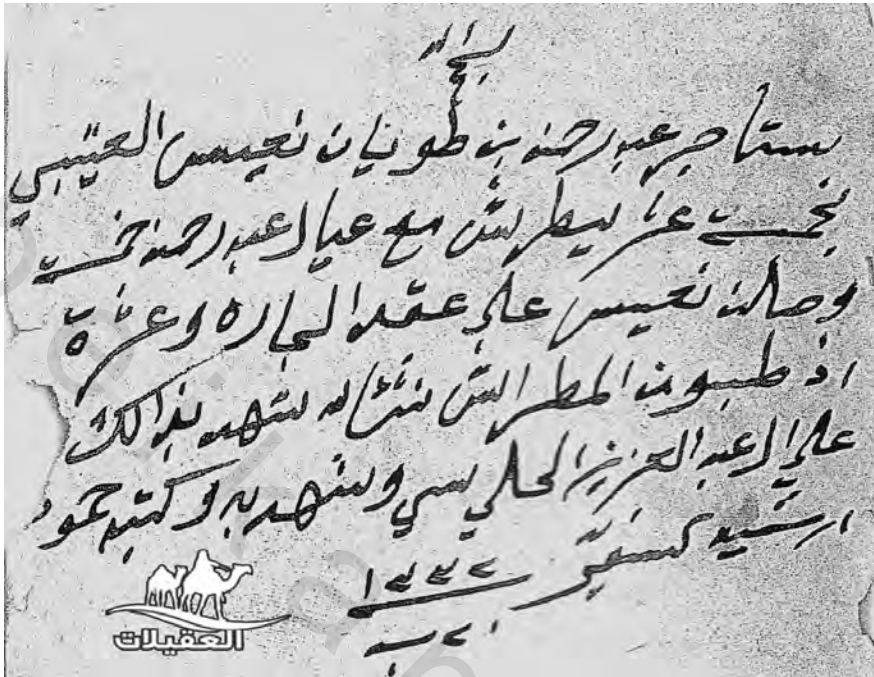 بسم الله
يستاجر عبد رحمن بن طويان نعيس العتيبي
بخمسة عشر يطرش مع عيال عبد رحمن خمسة
وصلن نعيس على عقد الجاره وعشرة
اذ طبون المطراش شهد بذالك
علي ال عبد العزيز الحليسي وشهد به وكتبه حمود
ارشيد
١٣٣٢
العقيلات